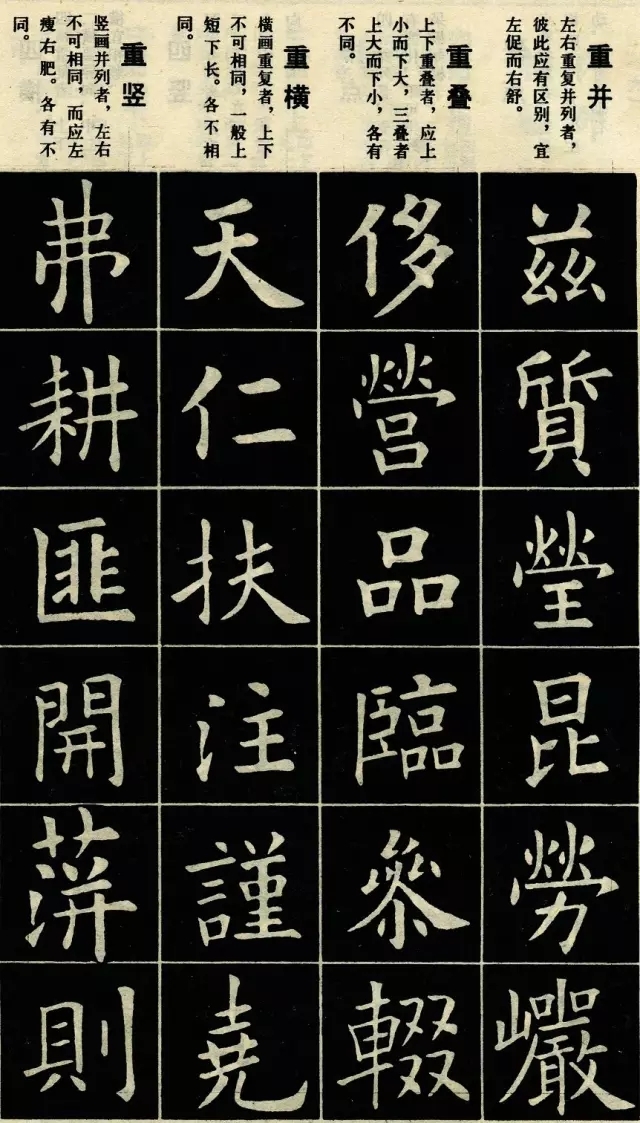 重并
左右重复并列者，
彼此应有区别，宜
左促而右舒。
兹質瑩昆勞巖
重叠
上下重叠者，应上
小而下大，三叠者
上大而下小，各有
不同。
侈營品臨叅輟
重横
横画重复者，上下
不可相同，一般上
短下长。各不相
同。
天仁扶注謹堯
重竖
竖画并列者，左右
不可相同，而应左
瘦右肥。各有不
同。
弗耕匪開萍則